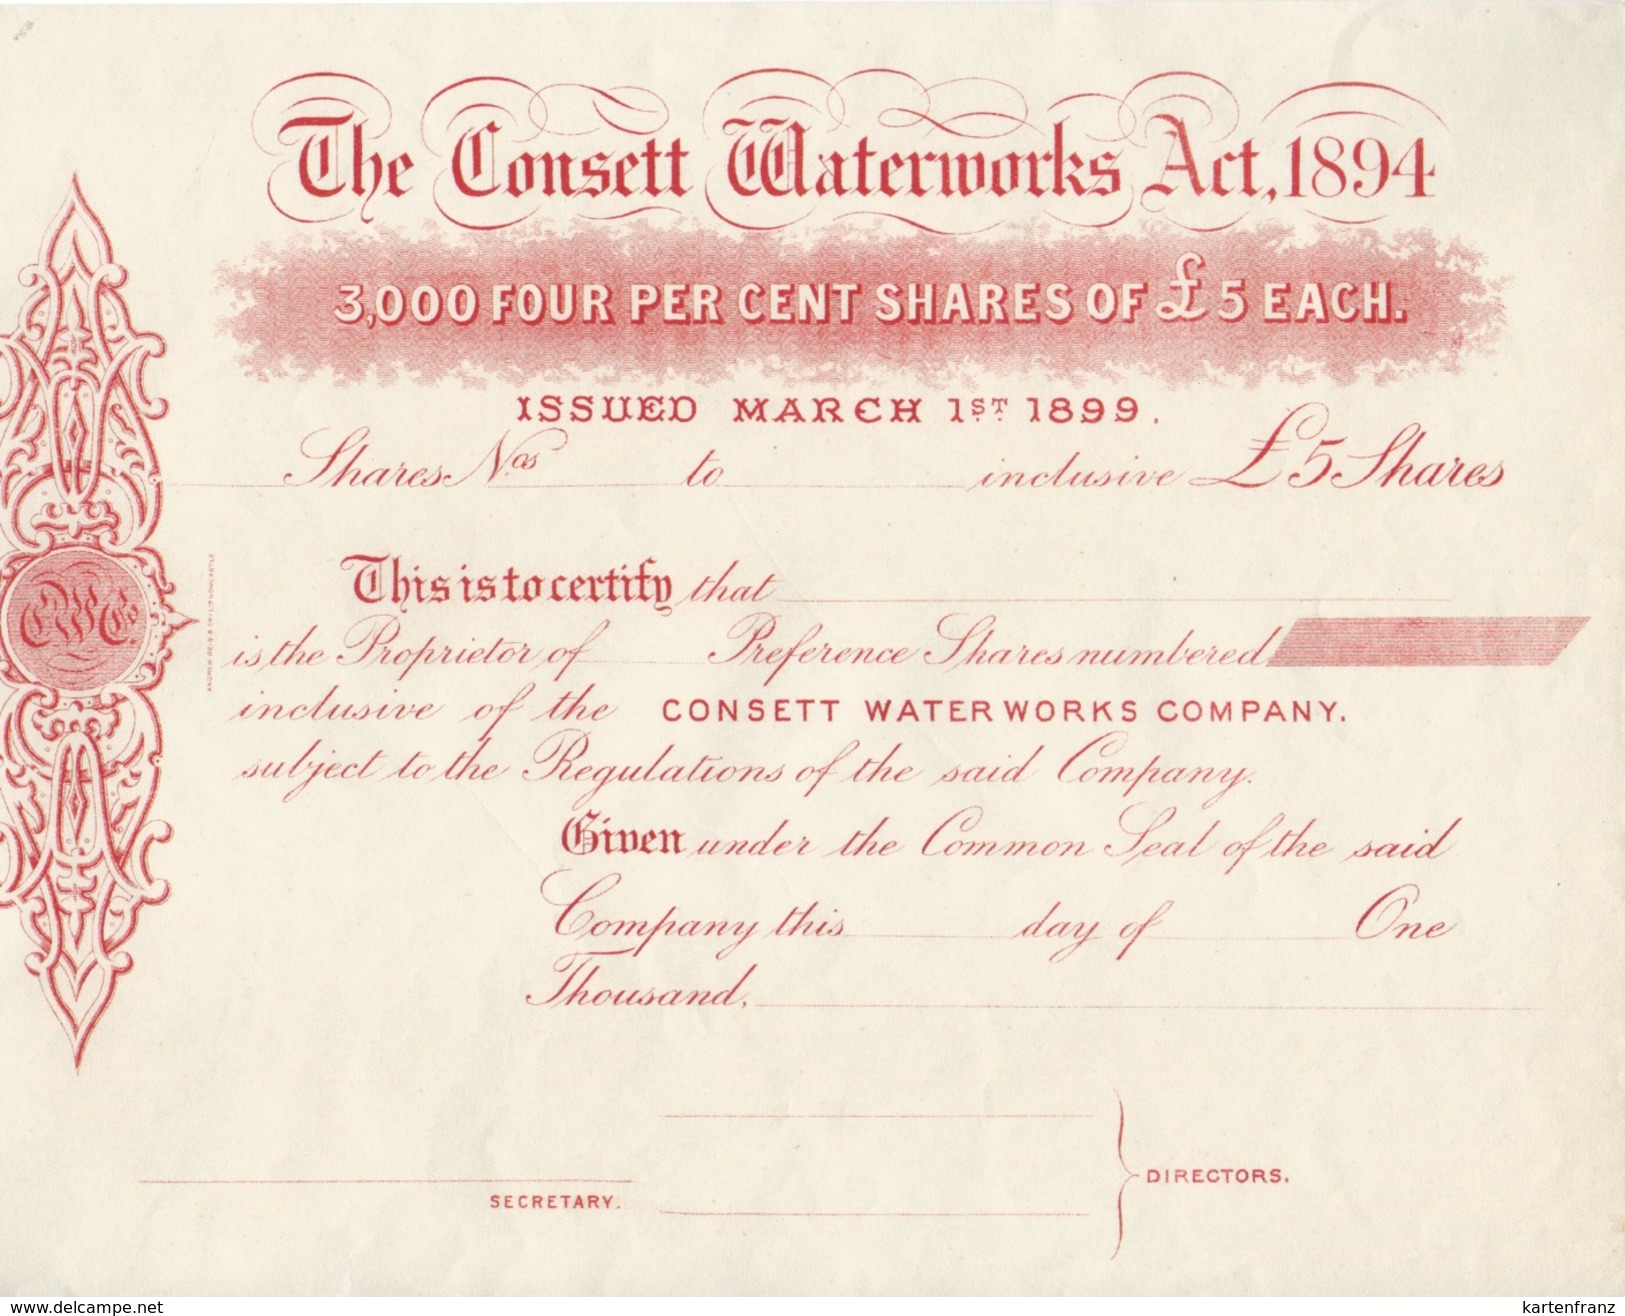 The Consett Waterworks Act, 1894
3,000 FOUR PER CENT SHARES OF £5 EACH.
ISSUED MARCH 1ST 1899.
Shares Nos to inclusive £5 Shares
This is to certify that
is the Proprietor of Preference Shares numbered
inclusive of the CONSETT WATERWORKS COMPANY.
subject to the Regulations of the said Company.
Given under the Common Seal of the said
Company this day of One
Thousand,
DIRECTORS.
SECRETARY.
CWCo.
www.delcampe.net
kartenfranz